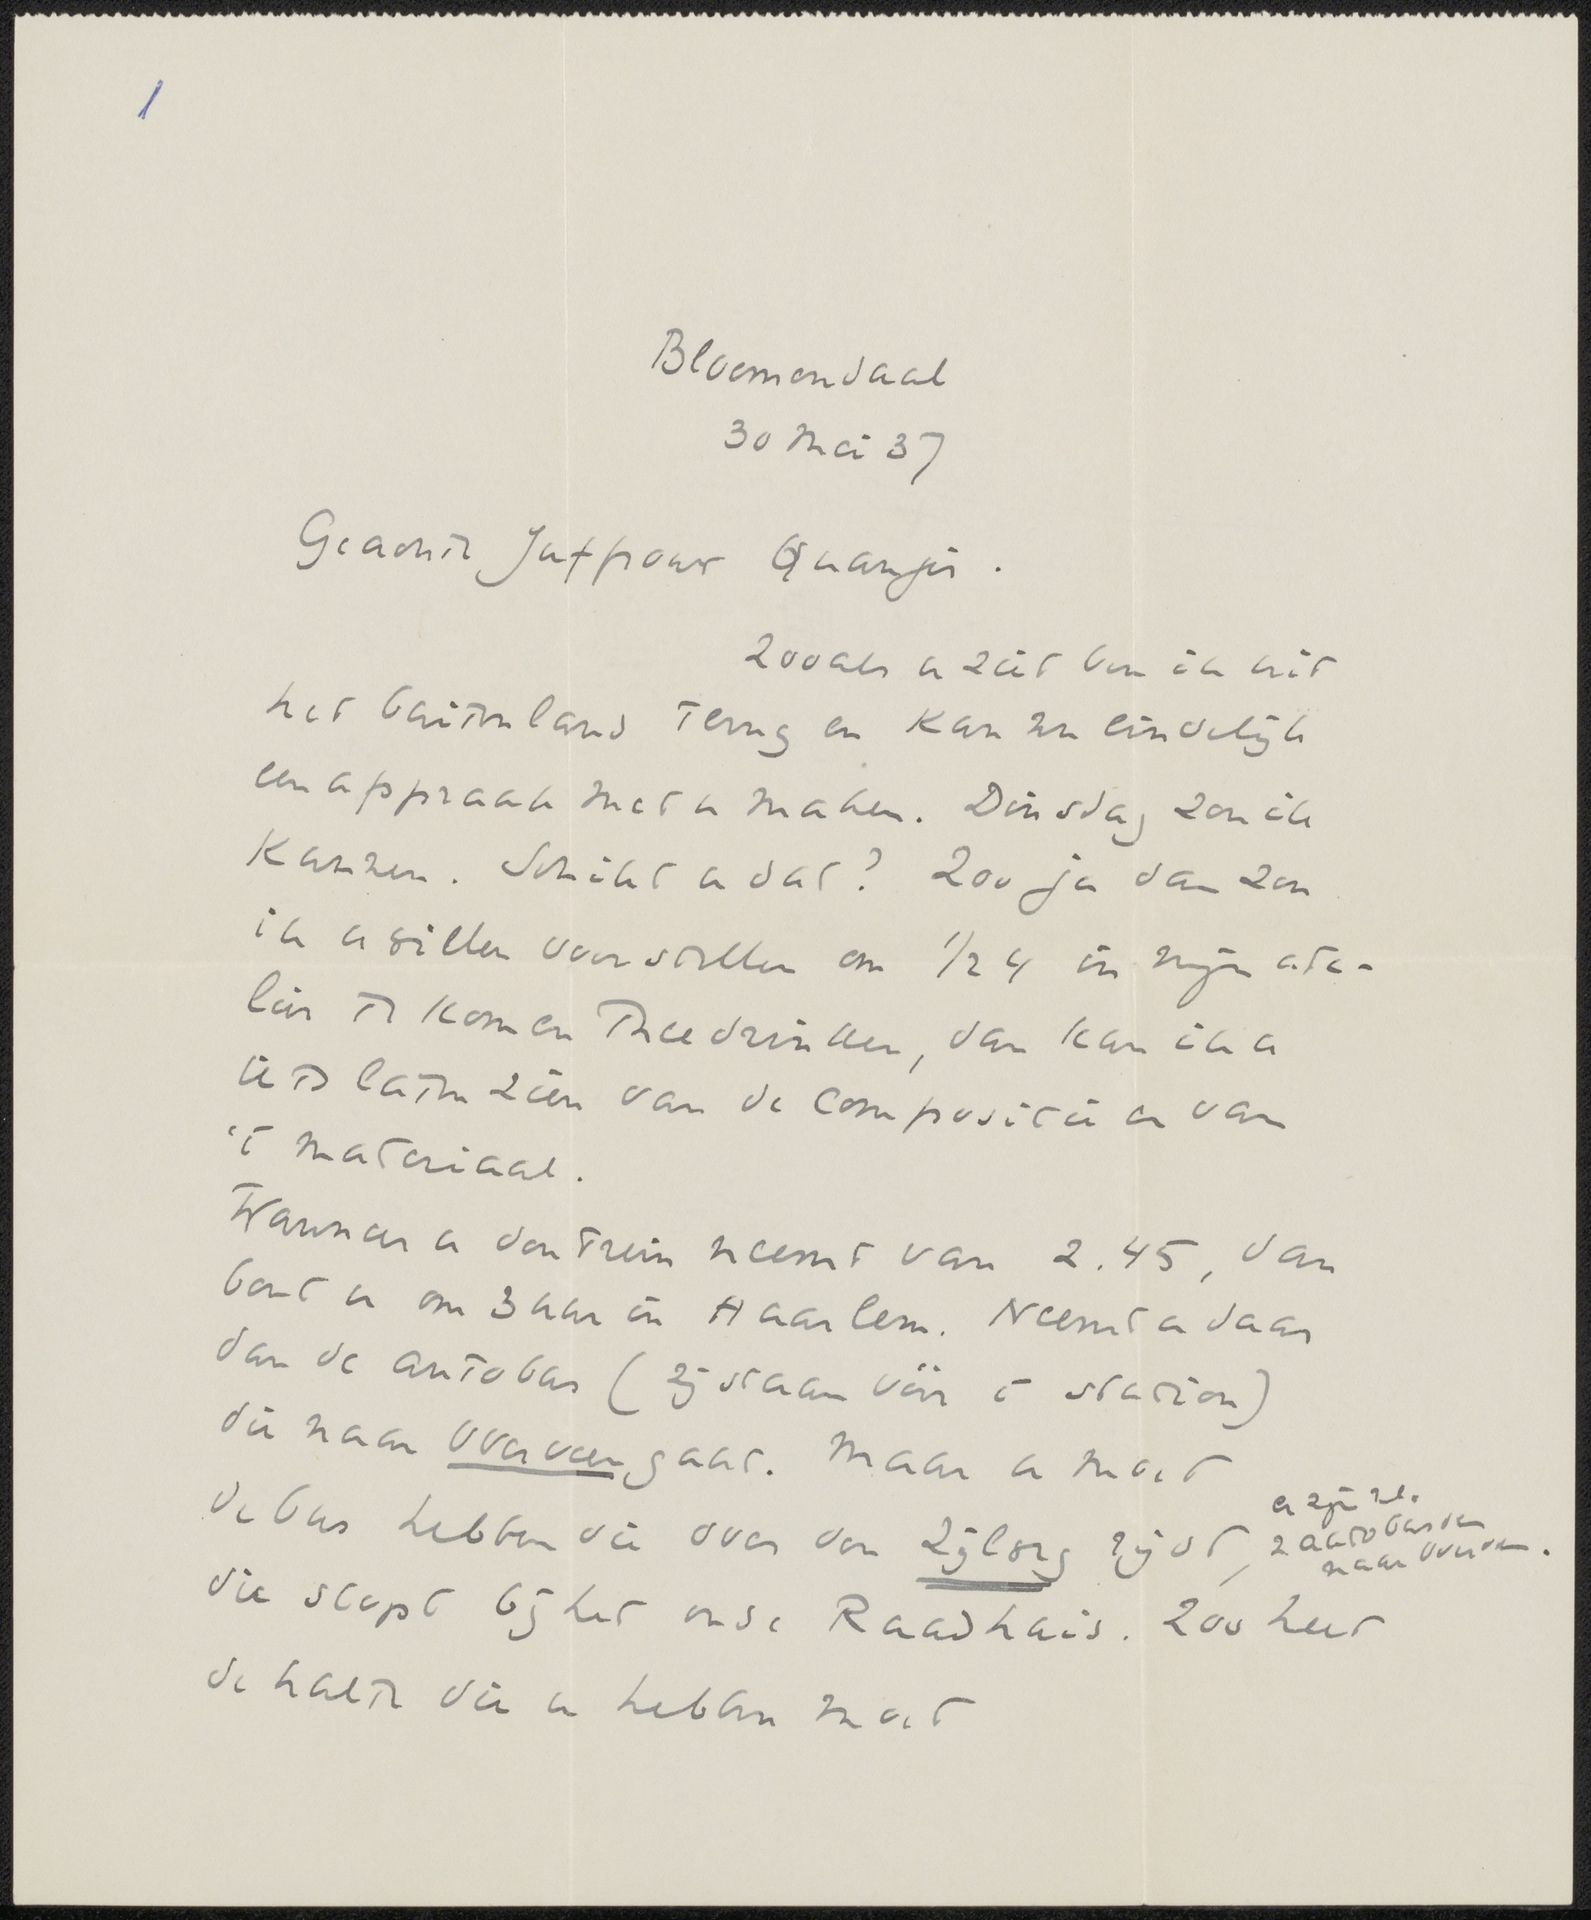 1
Bloemendaal
30 Mei 37
Geachte Juffrouw Quanjer.
Zooals u ziet ben ik uit
het buitenland terug en kan nu eindelijk
een afspraak met u maken. Dinsdag zou ik
kunnen. Schikt u dat? Zoo ja dan zou
ik u willen voorstellen om 1/2 4 in mijn ate-
lier te komen theedrinken, dan kan ik u
iets laten zien van de compositie en van
't materiaal.
Wanneer u den trein neemt van 2.45, dan
bent u om 3 uur in Haarlem. Neemt u daar
dan de autobus (zij staan vóór 't station)
die naar Overveen gaat. Maar u moet
de bus hebben die over den Zijlweg rijdt,
er zijn nl.
2 autobussen
naar Overveen.
die stopt bij het oude Raadhuis. Zoo heet
de halte die u hebben moet